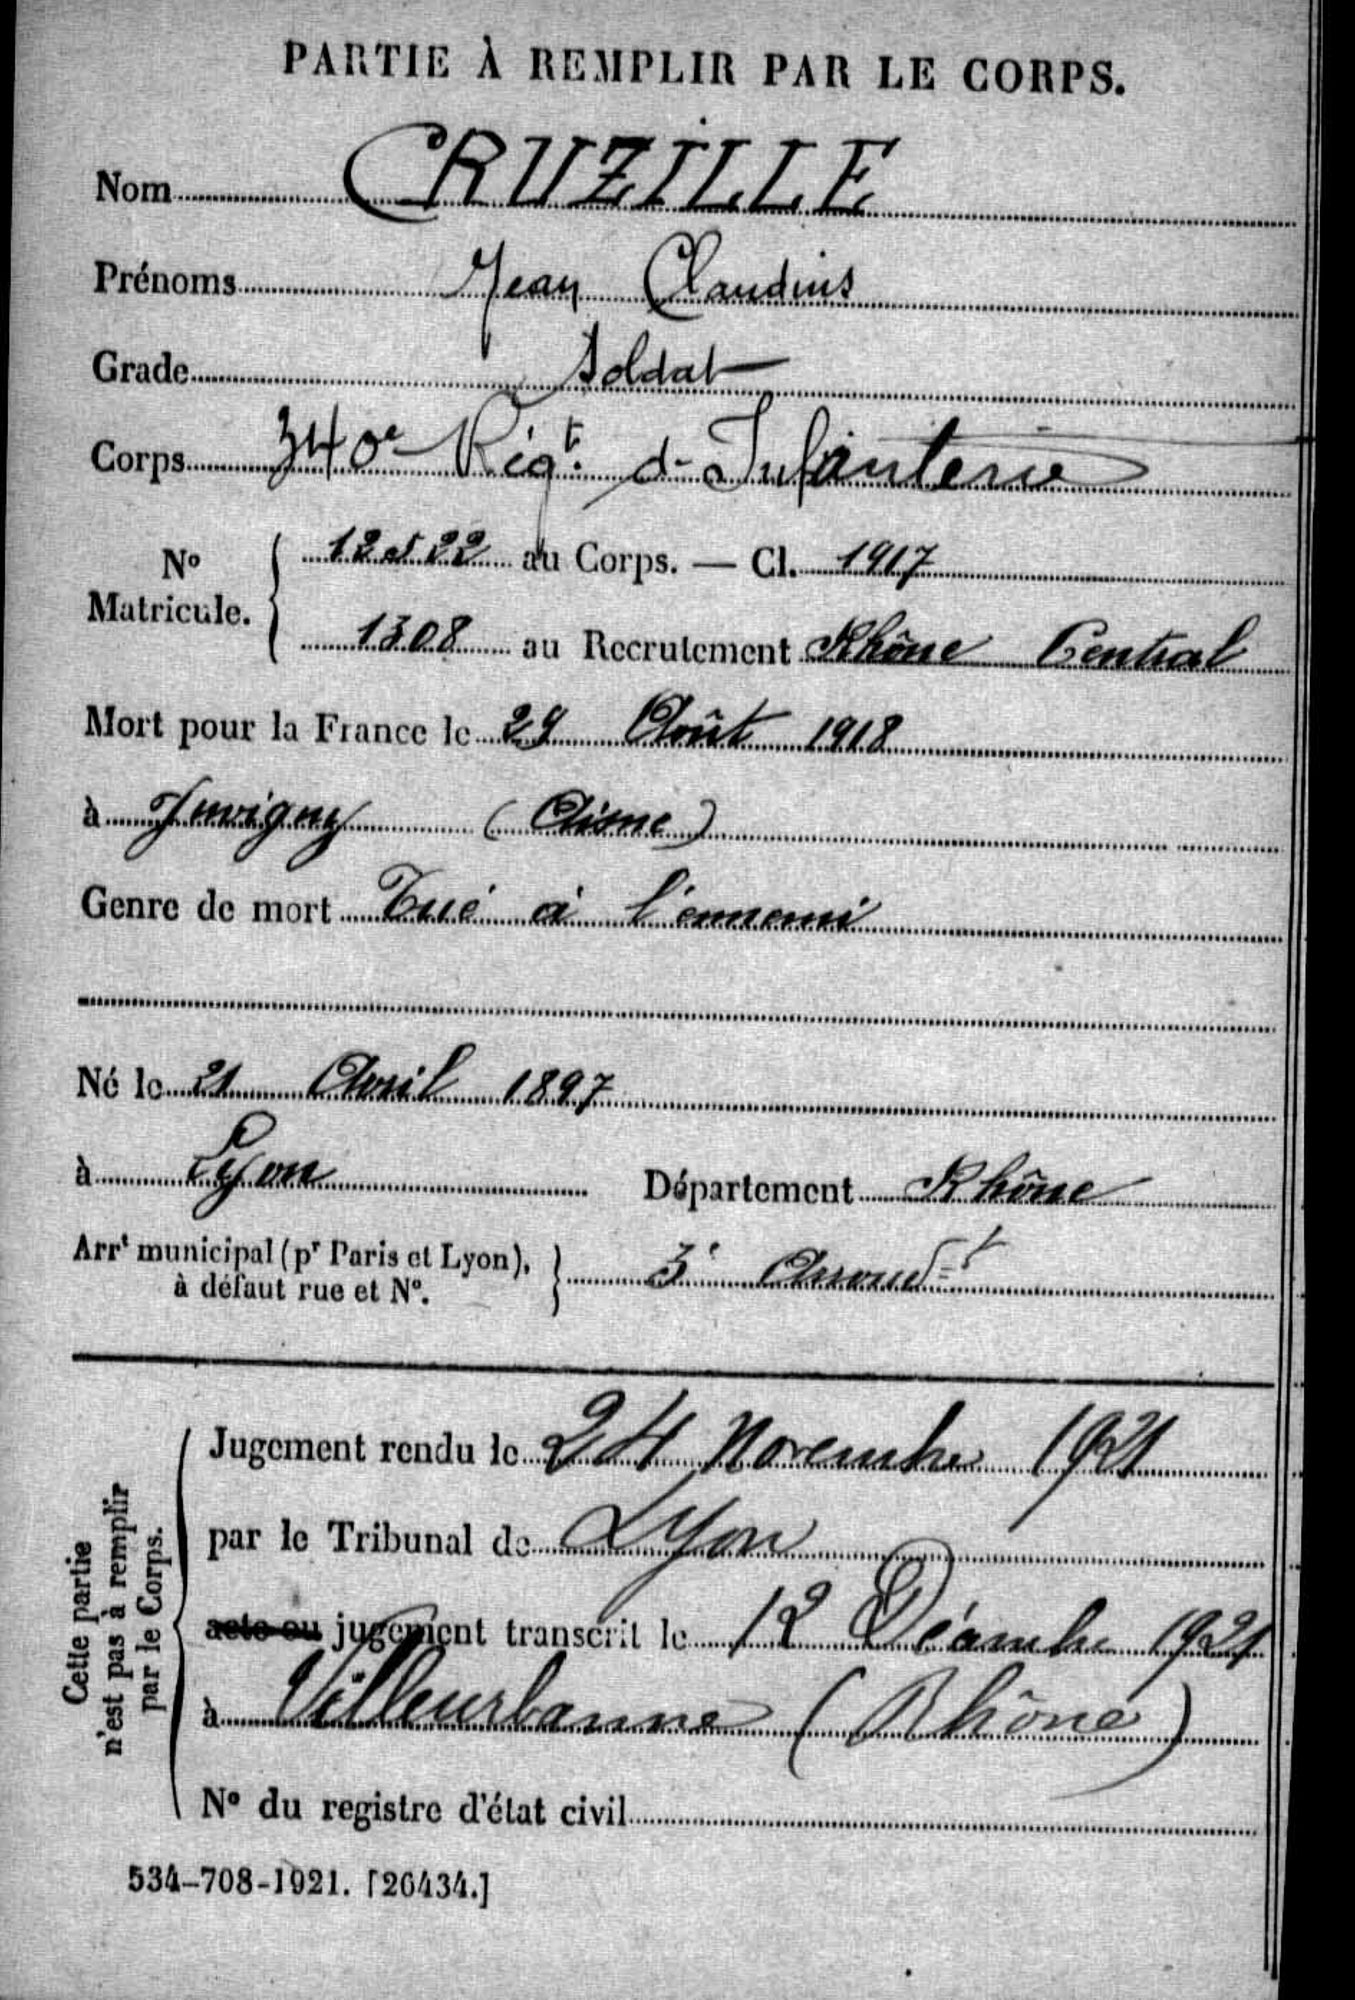 PARTIE À REMPLIR PAR LE CORPS.
Nom CRUZILLE
Prénoms Jean Claudius
Grade Soldat
Corps 340e Régt. d'Infanterie
No Matricule. 12 et 22 au Corps. — Cl. 1917
1308 au Recrutement Rhône Central
Mort pour la France le 29 Août 1918
à Juvigny (Aisne)
Genre de mort Tué à l'ennemi
Né le 21 Avril 1897
à Lyon Département Rhône
Arrt municipal (pr Paris et Lyon), à défaut rue et No. 3e Arrondt
Cette partie n'est pas à remplir par le Corps.
Jugement rendu le 24 Novembre 1921
par le Tribunal de Lyon
acte ou jugement transcrit le 12 Décembre 1921
à Villeurbanne (Rhône)
No du registre d'état civil
534-708-1921. [26434.]